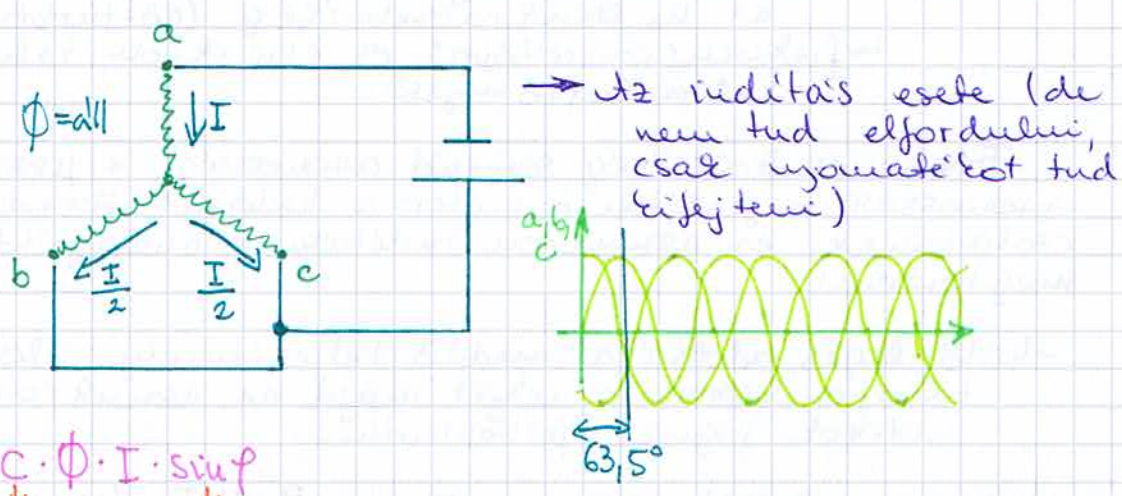 a
ϕ=áll
I
b
I/2
I/2
c
→ Az indítás esete (de
nem tud elfordulni,
csak nyomatékot tud
kifejteni)
a,b,
c
63,5°
C · ϕ · I · sinφ